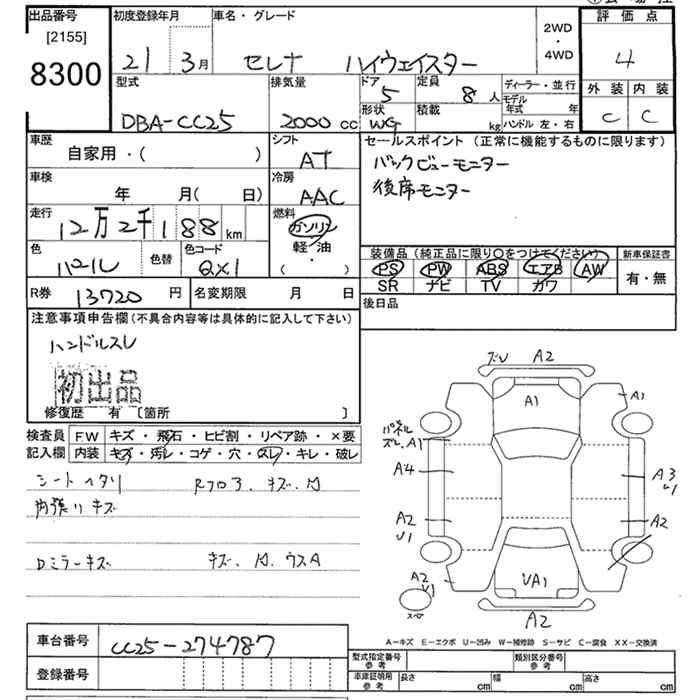 出品番号
[2155]
8300
初度登録年月
21 3月
車名・グレード
セレナ ハイウェイスター
2WD
・
4WD
評価点
4
外装 内装
C C
型式
DBA-CC25
排気量
2000 cc
ドア
5
定員
8 人
形状
WG
積載
kg
ディーラー・並行
モデル年式 年
ハンドル 左・右
車歴
自家用・( )
シフト
AT
セールスポイント (正常に機能するものに限ります)
バックビューモニター
後席モニター
車検
年 月( 日)
冷房
AAC
走行
12万2千188km
燃料
ガソリン
軽・油
( ・ )
色
パール
色替
色コード
QX1
装備品 (純正品に限り○をつけてください)
PS PW ABS エアB AW
SR ナビ TV カワ
新車保証書
有・無
R券
13720 円
名変期限 月 日
後日品
注意事項申告欄(不具合内容等は具体的に記入して下さい)
ハンドルスレ
初出品
修復歴 有 [箇所 ]
検査員
記入欄
FW キズ・飛石・ヒビ割・リペア跡・×要
内装 キズ・汚レ・コゲ・穴・スレ・キレ・破レ
シートヘタリ
内張りキズ
Dミラーキズ
ズレ A2
A1
A1
パネル
ズレ、A1
A4
A3
A2
U1
A2
A2
U1
スペア
UA1
A2
A-キズ E-エクボ U-凹み W-補修跡 S-サビ C-腐食 XX-交換済
車台番号
CC25-274787
登録番号
型式指定番号
参考
類別区分番号
参考
車庫証明用
参考
長さ cm
幅 cm
高さ cm